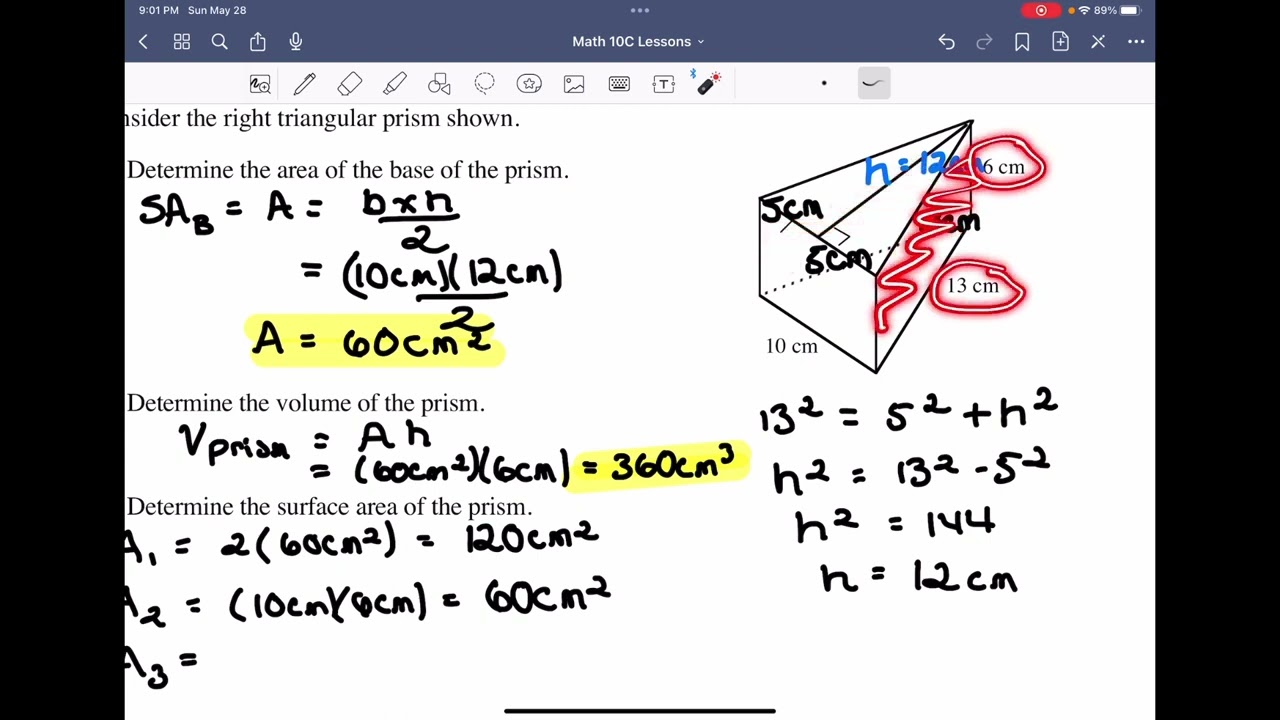 9:01 PM Sun May 28
89%
Math 10C Lessons
nsider the right triangular prism shown.
Determine the area of the base of the prism.
SA_B = A = b x h
2
= (10cm)(12cm)
2
A = 60cm²
h = 12cm
6 cm
5cm
5cm
cm
13 cm
10 cm
Determine the volume of the prism.
V prism = A h
= (60cm²)(6cm) = 360cm³
Determine the surface area of the prism.
A₁ = 2(60cm²) = 120cm²
A₂ = (10cm)(6cm) = 60cm²
A₃ =
13² = 5² + h²
h² = 13² - 5²
h² = 144
h = 12cm